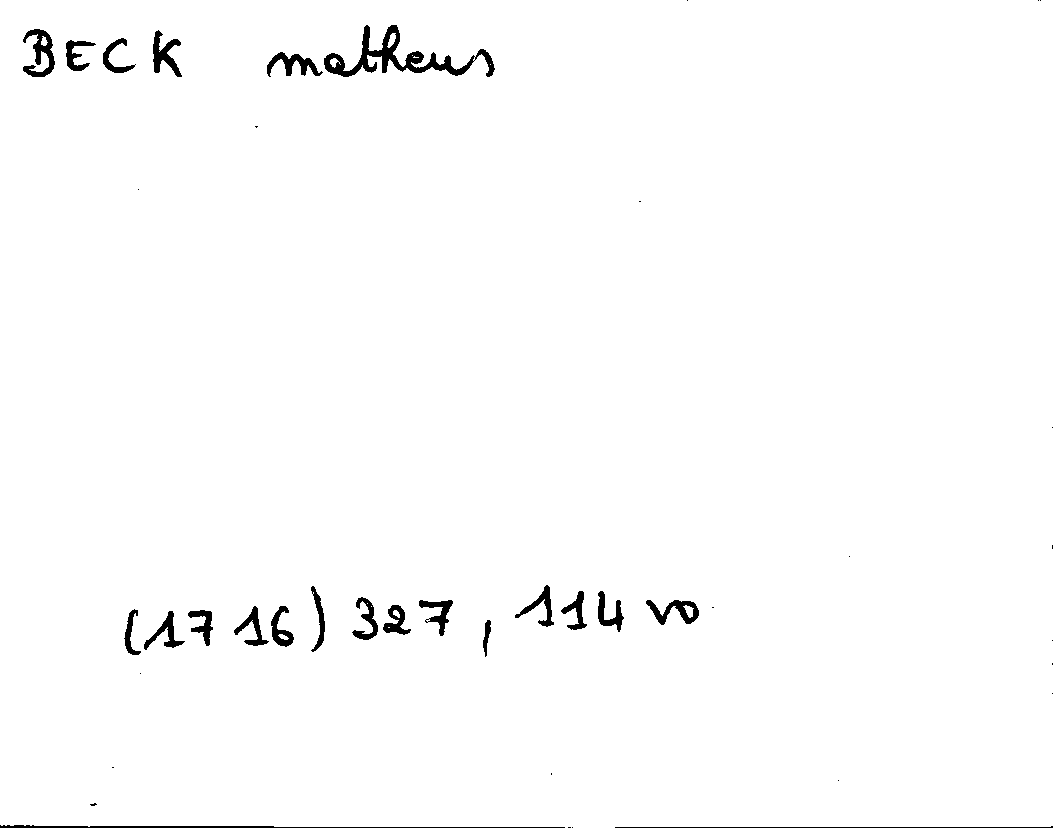 BECK matheus
(1716) 327, 114 vo